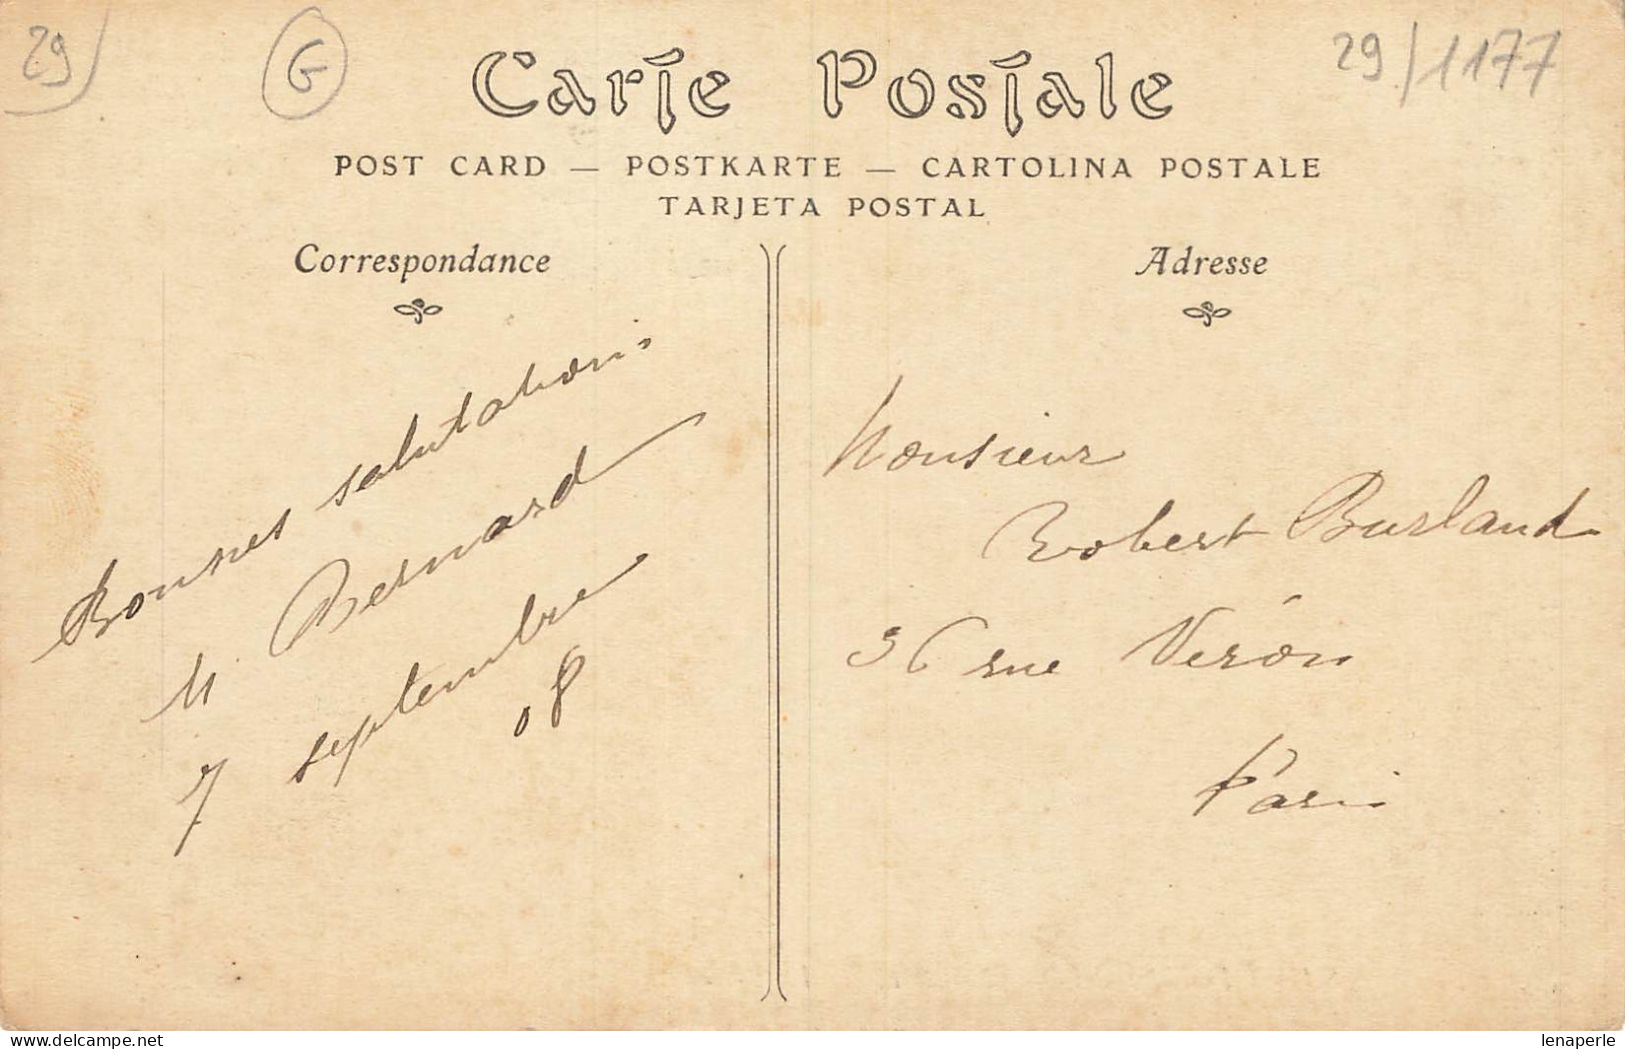 29
G
29/1177
Carte Postale
POST CARD — POSTKARTE — CARTOLINA POSTALE
TARJETA POSTAL
Correspondance
Bonnes salutations
M Bernard
7 septembre
08
Adresse
Monsieur
Robert Burland
36 rue Véron
Paris
delcampe.net
lenaperle